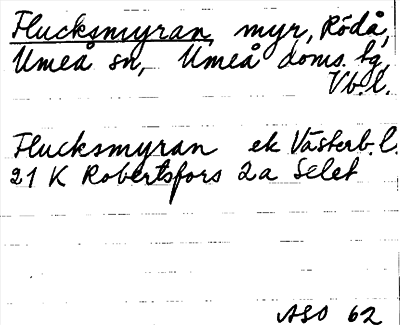 Flucksmyran, myr, Rödå,
Umeå sn, Umeå doms. bg,
Vb. l.
Flucksmyran ek Västerb. l.
21 K Robertsfors 2a Selet
ASO 62